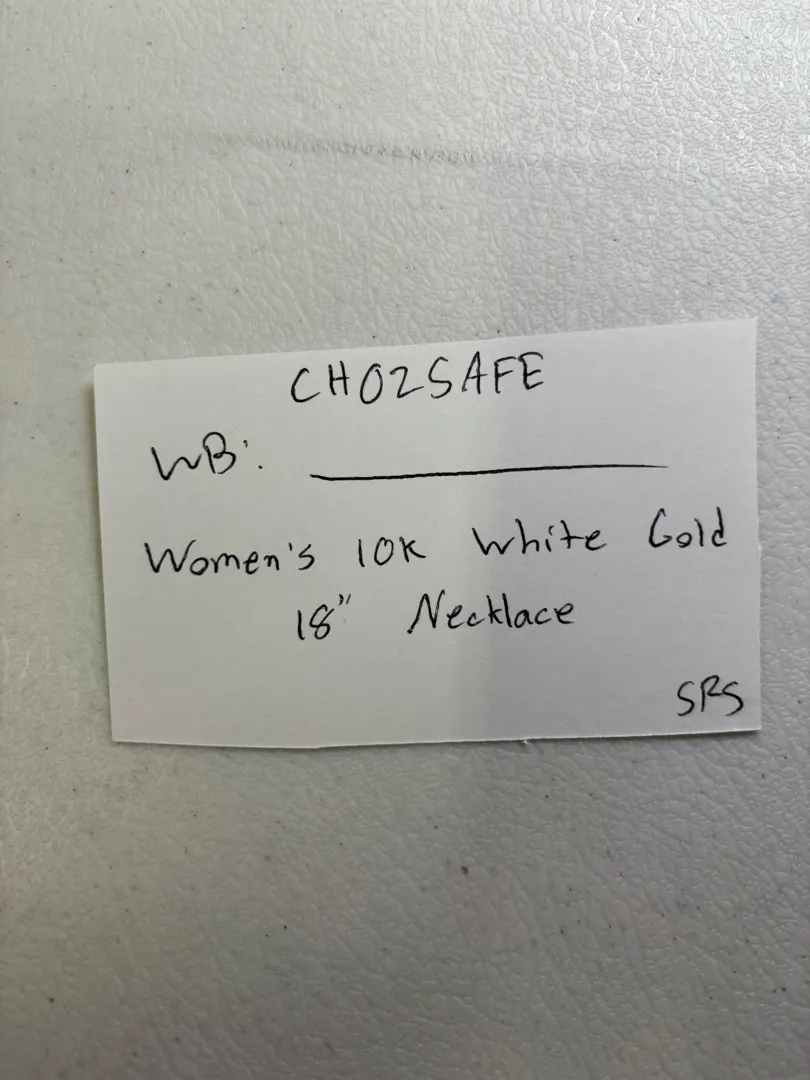 CH02SAFE
WB: ____________
Women's 10K White Gold
18" Necklace
SRS